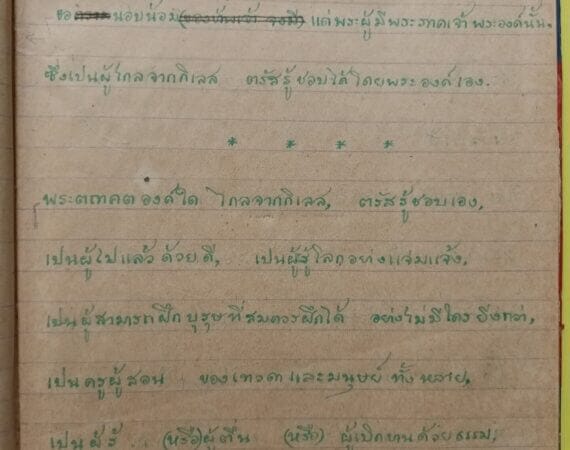 ขอนอบน้อม (ของข้าพเจ้า จงมี) แด่พระผู้มีพระภาคเจ้า พระองค์นั้น.
ซึ่งเป็นผู้ไกลจากกิเลส ตรัสรู้ชอบได้โดยพระองค์เอง.
* * * *
พระตถาคตองค์ใด ไกลจากกิเลส, ตรัสรู้ชอบเอง,
เป็นผู้ไปแล้วด้วยดี, เป็นผู้รู้โลกอย่างแจ่มแจ้ง,
เป็นผู้สามารถฝึกบุรุษที่สมควรฝึกได้ อย่างไม่มีใครยิ่งกว่า,
เป็นครูผู้สอน ของเทวดาและมนุษย์ทั้งหลาย,
เป็นผู้รู้ (หรือ)ผู้ตื่น (หรือ) ผู้เบิกบานด้วยธรรม,